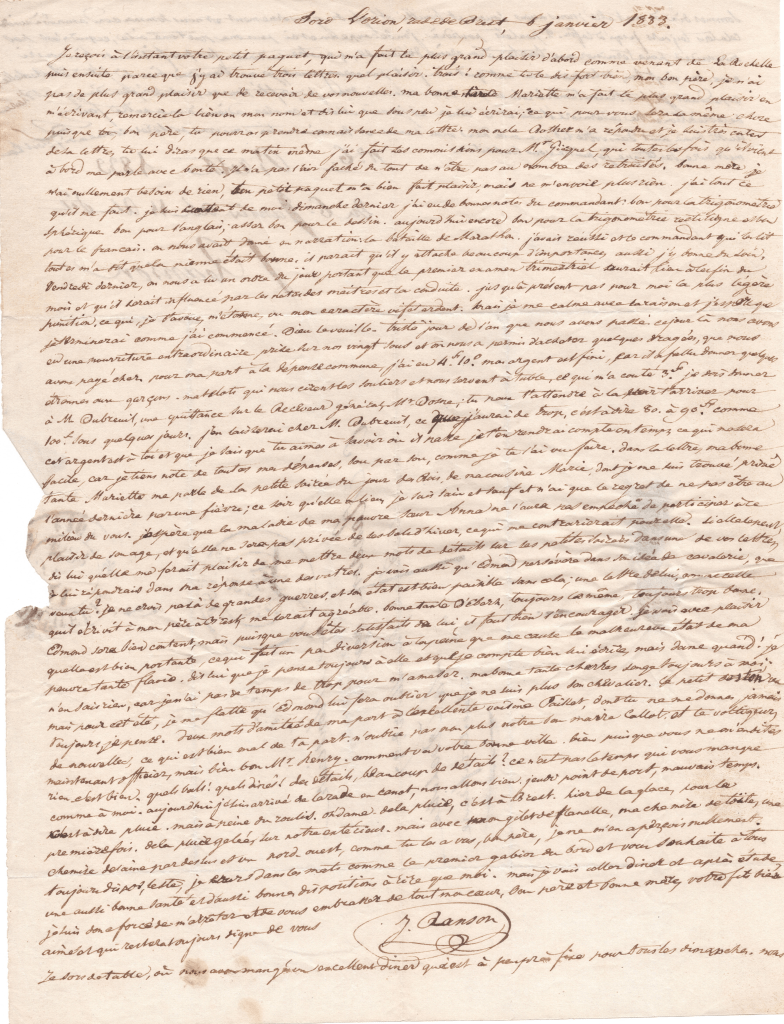 Bord L'orion, rade de Brest, 6 janvier 1833.
Je reçois à l'instant votre petit paquet, qui m'a fait le plus grand plaisir d'abord comme venant de La Rochelle
puis ensuite parceque j'y ai trouvé trois lettres quel plaisir. trois! comme tu le dis fort bien, mon bon père, je n'ai
pas de plus grand plaisir que de recevoir de vos nouvelles. ma bonne tante Mariette m'a fait le plus grand plaisir en
m'écrivant, remercie la bien en mon nom et dis lui que sous peu je lui écrirai; ce qui pour vous sera la même chose
puisque toi, bon père, tu pourras prendre connaissance de ma lettre. mon oncle m'a répondu et je suis très content
de sa lettre, tu lui diras que ce matin même j'ai fait les commissions pour Mr. Gicquel, qui toutes les fois qu'il vient
à bord me parle avec bonté. il n'a pas l'air faché du tout de n'être pas au nombre des retraités. bonne mère je
n'ai nullement besoin de rien, ton petit paquet m'a bien fait plaisir, mais ne m'envoie plus rien. j'ai tout ce
qu'il me faut. je suis content de moi. dimanche dernier j'ai eu de bonnes notes du commandant: bon pour la trigonométrie
sphérique bon pour l'anglais, assez bon pour le dessin. aujourd'hui encore bon pour la trigonométrie rectiligne et bon
pour le français. on nous avait donné en narration: la bataille de Marathon. j'avais réussi et le commandant qui les lit
toutes m'a dit que la mienne était bonne, il parait qu'il y attache beaucoup d'importance, aussi j'y donne du soin.
Vendredi dernier, on nous a lu un ordre du jour portant que le premier examen trimestriel aurait lieu à la fin du
mois et qu'il serait influencé par les notes des maîtres et la conduite. jusqu'à présent pas pour moi la plus légère
punition, ce qui, je t'avoue, m'étonne, vu mon caractère vif et ardent. mais je me calme avec la raison et j'espère que
je terminerai comme j'ai commencé. Dieu le veuille. triste jour de l'an que nous avons passé. ce jour là nous avons
eu une nourriture extraordinaire prise sur nos vingt sous et on nous a permis d'acheter quelques dragées, que nous
avons payé cher, pour ma part à la dépense commune j'ai eu 4f. 10s. mon argent est fini, car il a fallu donner quelques
étrennes aux garçons. matelots qui nous cirent les souliers et nous servent à table, ce qui m'a couté 3f. je dois donner
à M. Dubreuil, une quittance sur le Receveur général, Mr. Dosne; tu peux t'attendre à la voir t'arriver pour
100f. sous quelques jours. j'en laisserai chez M. Dubreuil, ce que j'aurai de trop, c'est à dire 80. à 90f. comme
cet argent est à toi et que je sais que tu aimes à savoir où il passe je t'en rendrai compte en temps, ce qui me sera
facile, car je tiens note de toutes mes dépenses, sou par sou, comme je te l'ai vu faire. dans sa lettre, ma bonne
tante Mariette me parle de la petite soirée du jour des Rois, de ma cousine Marie dont je me suis trouvé privé
l'année dernière par une fièvre; ce soir qu'elle a lieu, je suis sain et sauf et n'ai que le regret de ne pas être au
milieu de vous. j'espère que la maladie de ma pauvre sœur Anna ne l'aura pas empêchée de participer à ce
plaisir de son age, et qu'elle ne sera pas privée de ses bals d'hiver, ce qui me contrarierait pour elle.
dis lui qu'elle me ferait plaisir de me mettre deux mots de détails sur les petites soirées dans une de vos lettres,
je lui répondrais dans ma réponse à une des vôtres. je vois aussi qu'Edmond persévère dans son idée de cavalerie, que
veux tu? je ne crois pas à de grandes guerres, et son état est bien paisible sans cela; une lettre de lui
qu'il écrivit à mon me serait agréable. bonne tante toujours la même, toujours trop bonne,
Edmond sera bien content, mais puisque vous êtes satisfaits de lui il faut bien l'encourager. je vois avec plaisir
qu'elle est bien portante, ce qui fait un peu diversion à la peine que me cause la malheureux état de ma
pauvre tante Flavie. dis lui que je pense toujours à elle et que je compte bien lui écrire, mais dame quand? je
n'en sais rien, car je n'ai pas de temps de trop pour m'amuser, ma bonne tante songe toujours à moi.
mais pour cet été, je me flatte qu'Edmond lui fera oublier que je ne suis plus son chevalier.
toujours, je pense. Deux mots d'amitié de ma part à l'excellente voisine dont tu ne me donnes jamais
de nouvelles, ce qui est bien mal de ta part. n'oublie pas non plus notre et le voltigeur,
maintenant officier, mais bien bon Mr. Henry. comment va votre bonne ville. bien puisque vous ne m'en dites
rien, c'est bien. quels bals! quels diners! des détails, beaucoup de détails! ce n'est pas le temps qui vous manque
comme à moi. aujourd'hui j'ai arrivé de la rade en canot, nous allons bien. jeudi point de port, mauvais temps.
c'est à dire pluie. mais à peine du roulis. oh dame. de la pluie, c'est à Brest. hier de la glace, pour la
première fois. de la pluie gelée, sur notre entretieux. mais avec mon gilet de flanelle, ma chemise de toile, une
chemise de laine par dessus et un nord ouest, comme tu les a vus, bon père, je ne m'en aperçois nullement.
toujours dispos, leste, je cours dans les mats comme le premier gabier du bord et vous souhaite à tous
une aussi bonne santé et d'aussi bonnes dispositions à rire que moi. mais je vais aller diner et après étude
je suis donc forcé de m'arrêter et de vous embrasser de tout mon cœur, bon père et bonne mère, votre fils bien
aimé et qui restera toujours digne de vous
J. Ranson
Je sors de table, où nous avons mangé un excellent diner qui est à peu près fixe pour tous les dimanches. nous